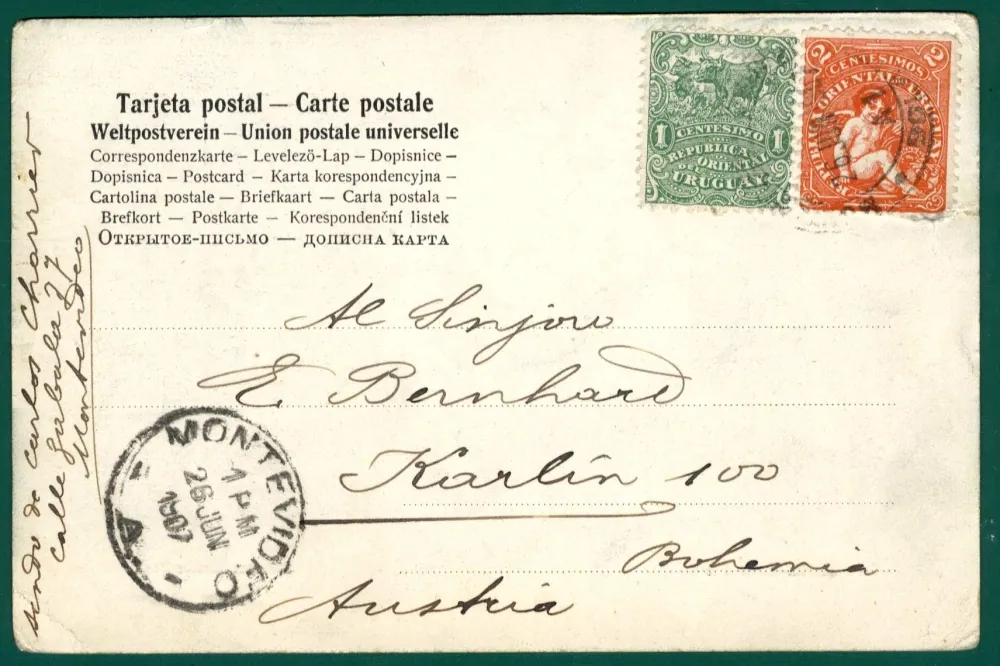 Tarjeta postal – Carte postale
Weltpostverein – Union postale universelle
Correspondenzkarte – Levelezö-Lap – Dopisnice –
Dopisnica – Postcard – Karta korespondencyjna –
Cartolina postale – Briefkaart – Carta postala –
Brefkort – Postkarte – Korespondenční listek
Открытое-письмо — дописна карта
1 CENTESIMO 1
REPUBLICA
ORIENTAL
URUGUAY
2 CENTESIMOS 2
ORIENTAL
Al Sinjoro
E Bernhard
Karlín 100
Bohemia
Austria
MONTEVIDEO
1 PM
26 JUN
1907
A
sendo de Carlos Charrier
Calle Zabala 77
Montevideo